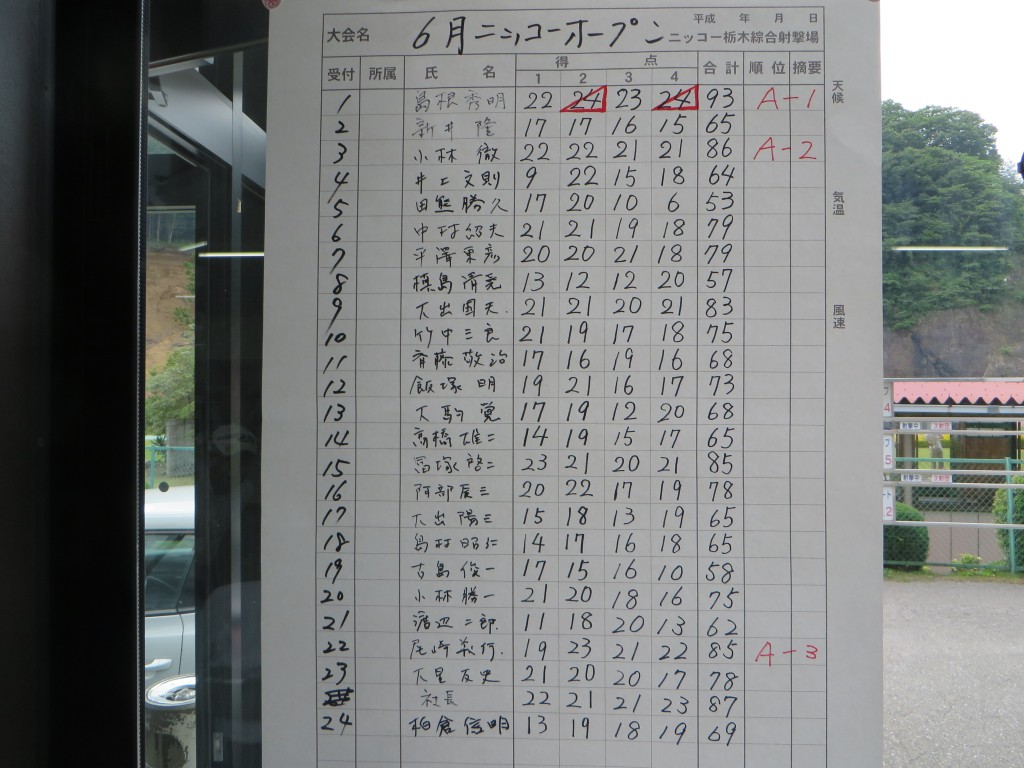 大会名 6月ニッコーオープン 平成 年 月 日
ニッコー栃木綜合射撃場
受付 所属 氏 名 得 点 合計 順位 摘要
1 2 3 4
1 島根秀明 22 24 23 24 93 A-1
2 新井 隆 17 17 16 15 65
3 小林 徹 22 22 21 21 86 A-2
4 井上文則 9 22 15 18 64
5 田熊勝久 17 20 10 6 53
6 中村紀夫 21 21 19 18 79
7 平澤 20 20 21 18 79
8 島 13 12 12 20 57
9 大出国夫 21 21 20 21 83
10 竹中三良 21 19 17 18 75
11 斉藤敬治 17 16 19 16 68
12 飯塚 明 19 21 16 17 73
13 大駒 覚 17 19 12 20 68
14 高橋雄二 14 19 15 17 65
15 冨塚啓二 23 21 20 21 85
16 阿部辰三 20 22 17 19 78
17 大出陽三 15 18 13 19 65
18 島村昭仁 14 17 16 18 65
19 古島俊一 17 15 16 10 58
20 小林勝一 21 20 18 16 75
21 渡辺二郎 11 18 20 13 62
22 尾崎義行 19 23 21 22 85 A-3
23 大星友史 21 20 20 17 78
社長 22 21 21 23 87
24 柏倉信明 13 19 18 19 69
天候
気温
風速
4
5
2
射撃中